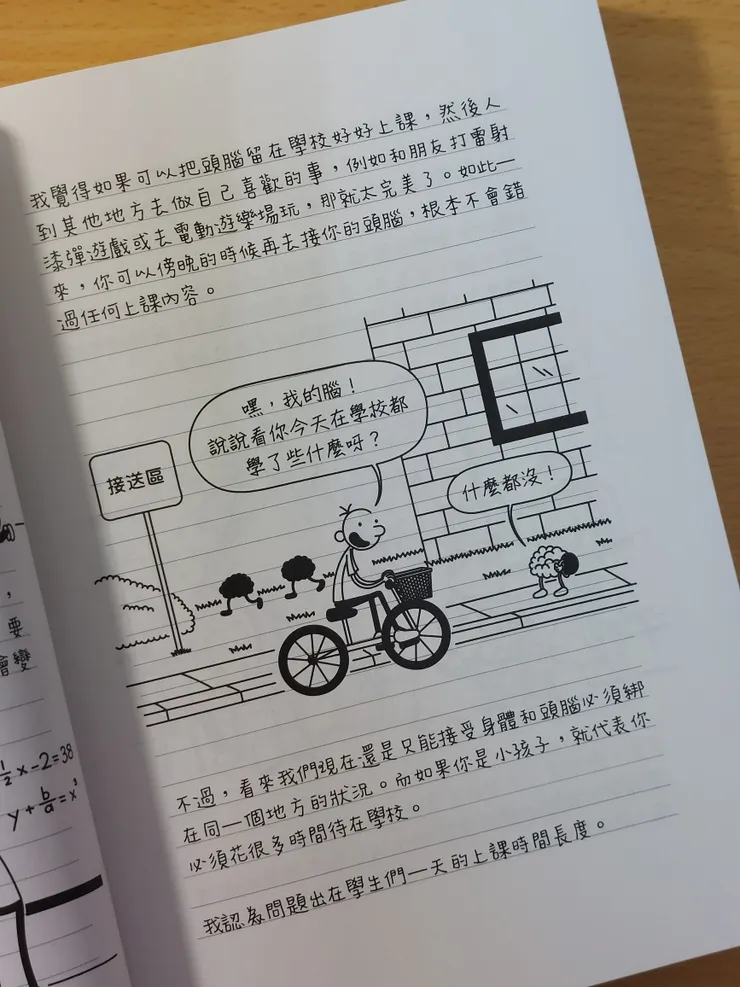 我覺得如果可以把頭腦留在學校好好上課，然後人
到其他地方去做自己喜歡的事，例如和朋友打雷射
漆彈遊戲或去電動遊樂場玩，那就太完美了。如此一
來，你可以傍晚的時候再去接你的頭腦，根本不會錯
過任何上課內容。
嘿，我的腦！
說說看你今天在學校都
學了些什麼呀？
接送區
什麼都沒！
不過，看來我們現在還是只能接受身體和頭腦必須綁
在同一個地方的狀況。而如果你是小孩子，就代表你
必須花很多時間待在學校。
我認為問題出在學生們一天的上課時間長度。
，
要
會變
½x-2=38
y+b/a=x